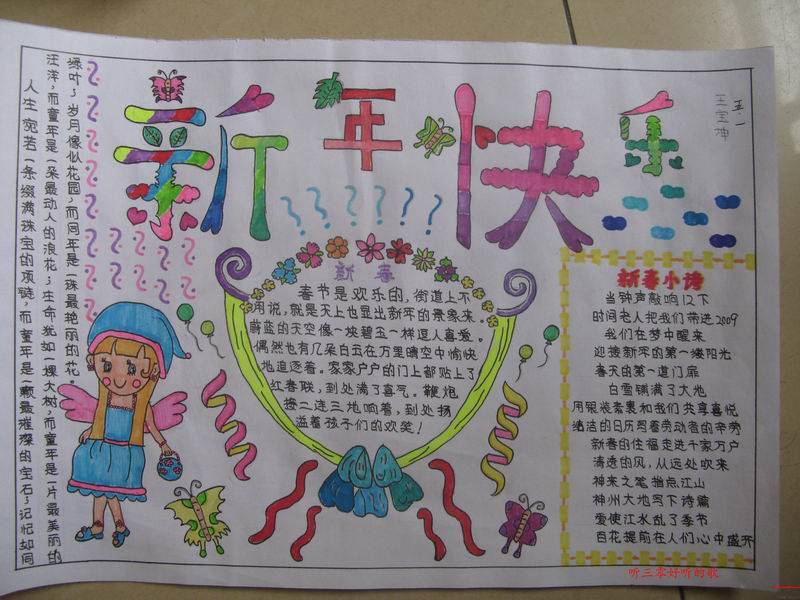 新年快乐
五.一
王宝坤
新春
春节是欢乐的，街道上不
用说，就是天上也显出新年的景象来。
蔚蓝的天空像一块碧玉一样逗人喜爱。
偶然也有几朵白玉在万里晴空中愉快
地追逐着。家家户户的门上都贴上了
红春联，到处满了喜气。鞭炮
接二连三地响着，到处扬
溢着孩子们的欢笑！
新春小诗
当钟声敲响12下
时间老人把我们带进2009
我们在梦中醒来
迎接新年的第一缕阳光
春天的第一道门扉
白雪铺满了大地
用银装素裹和我们共享喜悦
皓洁的日历写着劳动者的辛劳
新春的住福走进千家万户
清逸的风，从远处吹来
神来之笔指点江山
神州大地写下诗篇
爱使江水乱了季节
百花提前在人们心中盛开
人生宛若一条缀满珠宝的项链，而童年是一颗最璀璨的宝石；记忆如同
汪洋，而童年是一朵最动人的浪花；生命犹如一棵大树，而童年是一片最美丽的
绿叶；岁月像似花园，而同年是一珠最艳丽的花。
听三零好听的歌